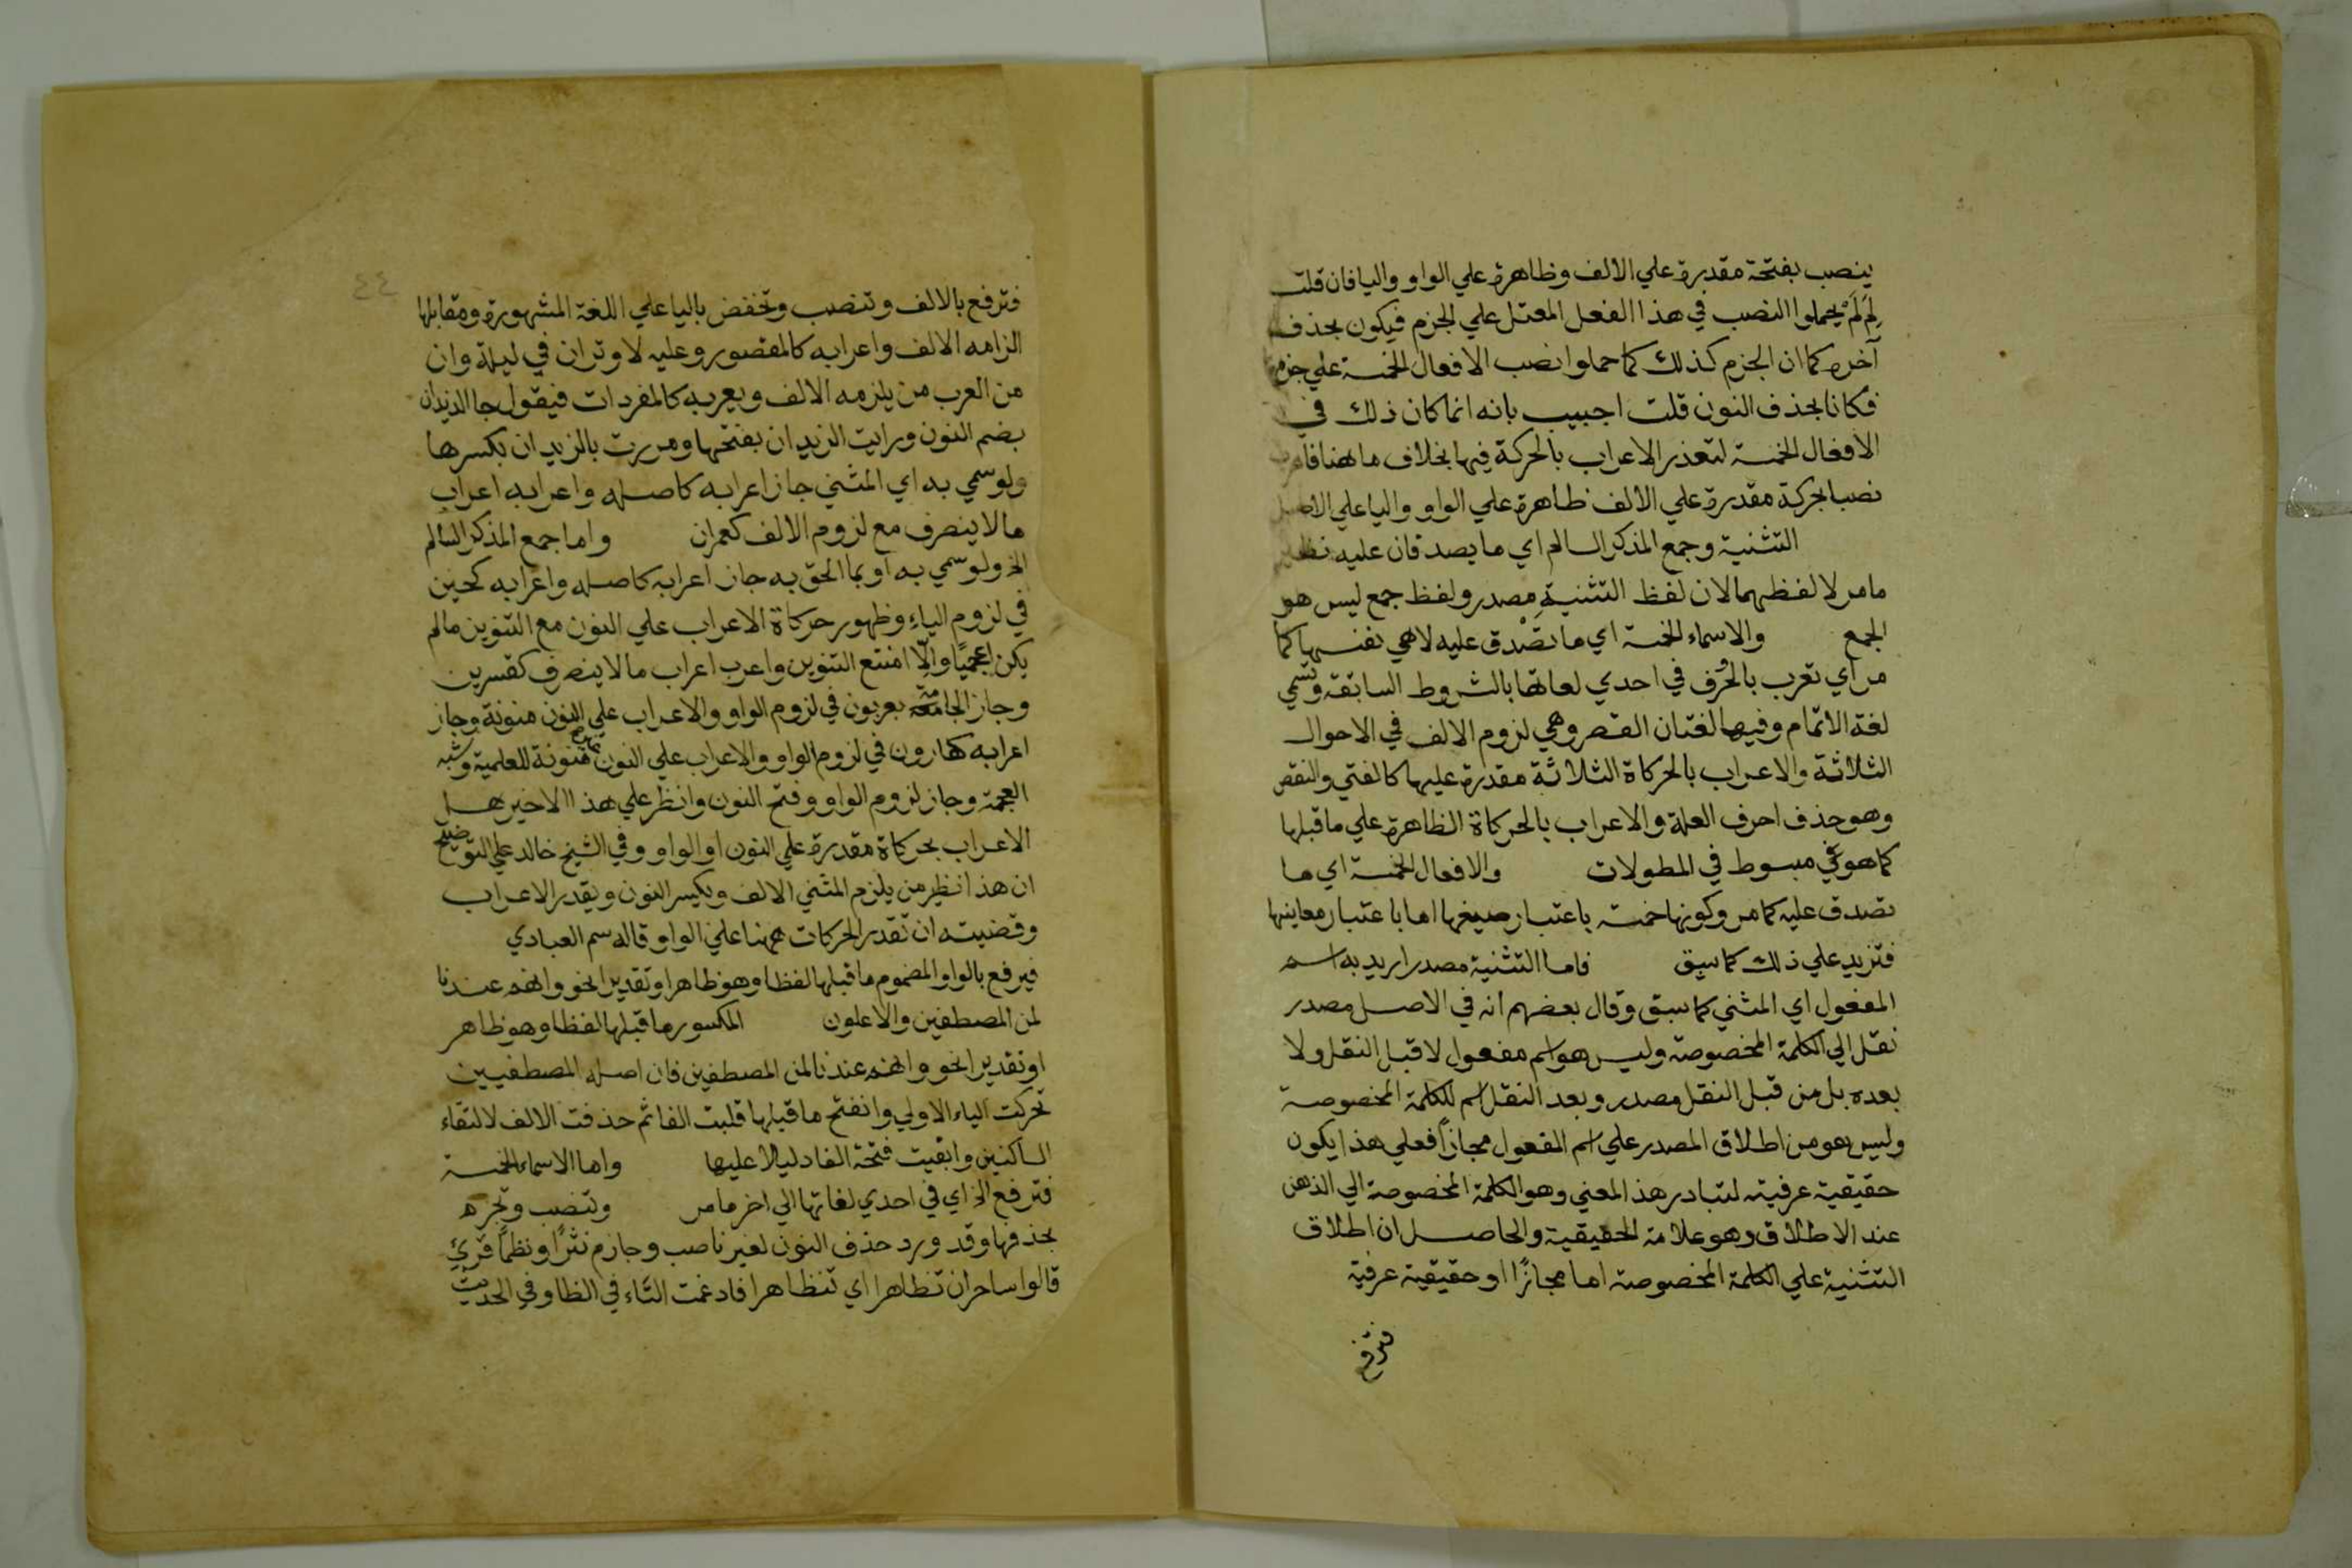 ينصب بفتحة مقدرة علي الالف وظاهرة علي الواو واليا فان قلت
لِمَ لَمْ يحملوا النصب في هذا الفعل المعتل علي الجزم فيكون بحذف
آخره كما ان الجزم كذلك كما حملوا نصب الافعال الخمسة علي جزمها
فكانا بحذف النون قلت اجيب بانه انما كان ذلك في
الافعال الخمسة لتعذر الاعراب بالحركة فيها بخلاف ما هنا
نصبا بحركة مقدرة علي الالف ظاهرة علي الواو واليا علي الاصل
التثنية وجمع المذكر السالم اي ما يصدقان عليه نظير
ما مر لا لفظهما لان لفظ التثنيةِ مصدر ولفظ جمع ليس هو
الجمع والاسماء الخمسة اي ما تصْدق عليه لا هي نفسها كما
مر اي تعرب بالحرُف في احدي لعاتها بالشروط السابقة وتسمي
لغة الاتمام وفيها لغتان القصر وهي لزوم الالف في الاحوال
الثلاثة والاعراب بالحركاة الثلاثة مقدرة عليها كالفتي والنقص
وهو حذف احرف العلة والاعراب بالحركاة الظاهرة علي ما قبلها
كما هو مبسوط في المطولات والافعال الخمسة اي ما
تصدق عليه كما مر وكونها خمسة باعتبار صيغها اما باعتبار معاينها
فتزيد علي ذلك كما سبق فاما التثنية مصدر اريد به اسم
المفعول اي المثني كما سبق وقال بعضهم انه في الاصل مصدر
نقل الي الكلمة المخصوصة وليس هو اسم مفعول لا قبل النقل ولا
بعده بل من قبل النقل مصدر وبعد النقل اسم للكلمة المخصوصة
وليس هو من اطلاق المصدر علي اسم المفعول مجازاً فعلي هذا يكون
حقيقية عرفية لتبادر هذ المعني وهو الكلمة المخصوصة الي الذهن
عند الاطلاق وهو علامة الحقيقية والحاصل ان اطلاق
التثنية علي الكلمة المخصوصة اما مجازًا او حقيقية عرفية
فترفع
٤٤
فترفع بالالف وتنصب وتخفض باليا علي اللغة المشهورة ومقابلها
الزامه الالف واعرابه كالمقصور وعليه لا وتران في ليلة وان
من العرب من يلزمه الالف ويعربه كالمفردات فيقول جا الزيدان
بضم النون ورايت الزيدان بفتحها ومررت بالزيدان بكسرها
ولو سمي به اي المثني جاز اعرابه كاصله واعرابه اعراب
ما لا ينصرف مع لزوم الالف كعمران واما جمع المذكر السالم
الخ ولو سمي به او بما الحق به جاز اعرابه كاصله واعرابه كحين
في لزوم الياءِ وظهور حركاة الاعراب علي النون مع التنوين ما لم
يكن اعجميًا والّا امتنع التنوين واعرب اعراب ما لا ينصرف كقنسرين
وجاز بعربون في لزوم الواو والاعراب علي النون منونة وجاز
اعرابه كهارون في لزوم الواو والاعراب علي النون منونة للعلمية وشبه
العجمة وجاز لزوم الواو وفتح النون وانظر علي هذا الاخير هل
الاعراب بحركاة مقدرة علي النون او الواو وفي الشيخ خالد علي التوضيح
ان هذا نظير من يلزم المثني الالف ويكسر النون ويقدر الاعراب
وقضيته ان تقدر الحركات ههنا علي الواو قاله سم العبادي
فيرفع بالواو المضموم ما قبلها لفظا وهو ظاهر او تقديرا نحو وانهم عندنا
لمن المصطفين والاعلون المكسور ما قبلها لفظا وهو ظاهر
او تقديرا نحو وانهم عندنا لمن المصطفين فان اصله المصطفيين
تحركت الياء الاولي وانفتح ما قبلها قلبت الفا ثم حذفت الالف لالتقاء
الساكنين وابقيت فتحة الفا دليلا عليها واما الاسماء الخمسة
فترفع الخ اي في احدي لغاتها الي اخر ما مر وتنصب وتجزم
بحذفها وقد ورد حذف النون لغير ناصب وجازم نثرًا ونظمًا قرئ
قالوا ساحران تظاهرا اي تتظاهرا فادغمت التاء في الظا وفي الحديث